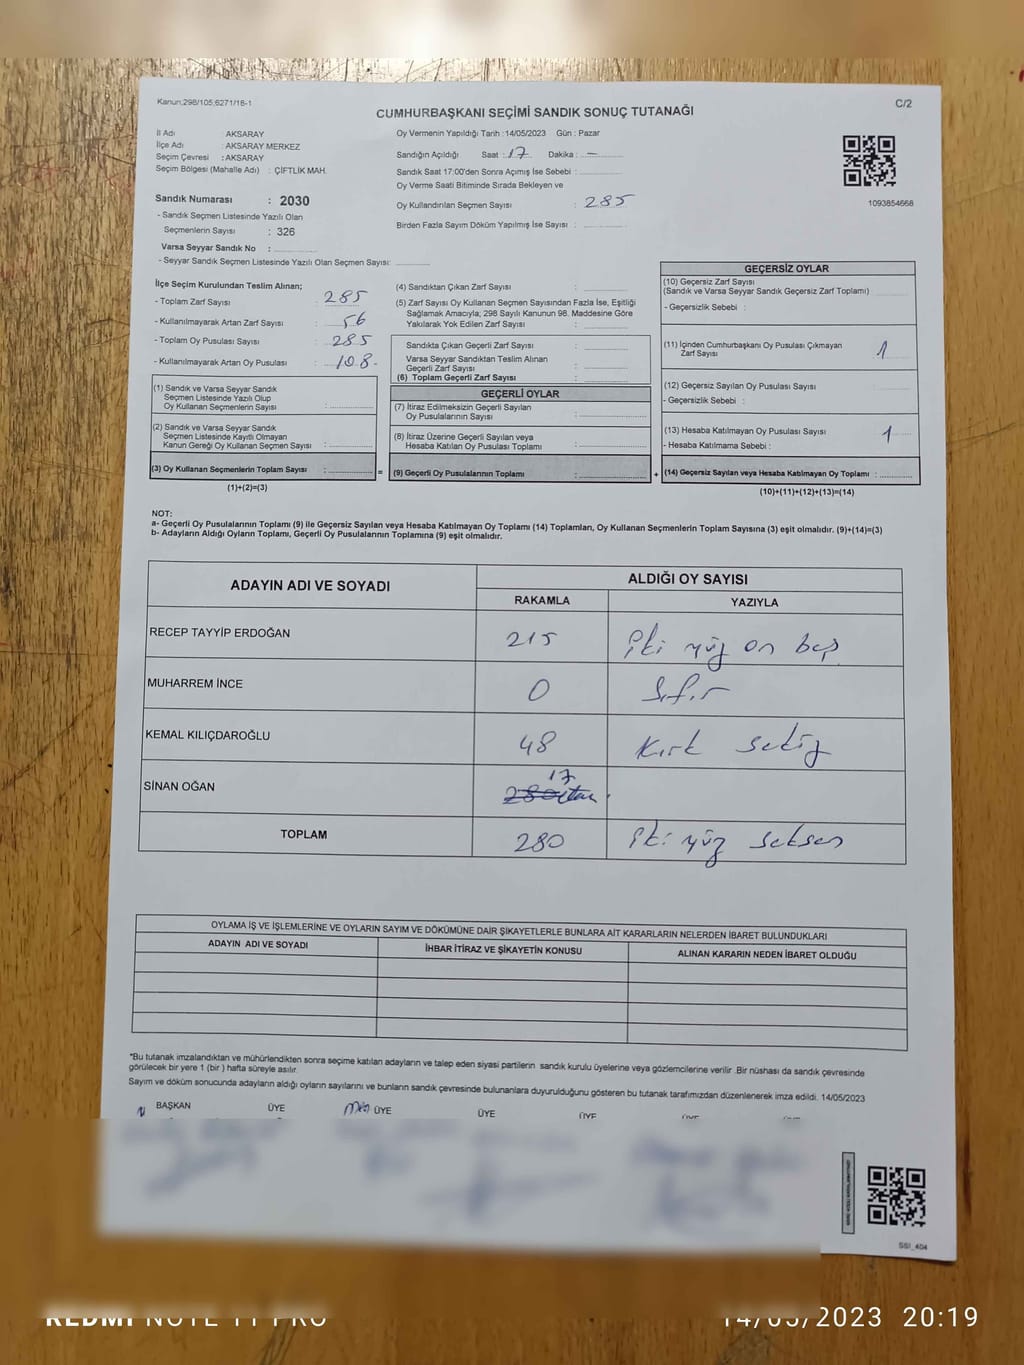 Kanun,298/105,6271/18-1
C/2
CUMHURBAŞKANI SEÇİMİ SANDIK SONUÇ TUTANAĞI
İl Adı : AKSARAY
İlçe Adı : AKSARAY MERKEZ
Seçim Çevresi : AKSARAY
Seçim Bölgesi (Mahalle Adı) : ÇİFTLİK MAH.
Sandık Numarası : 2030
- Sandık Seçmen Listesinde Yazılı Olan
Seçmenlerin Sayısı : 326
Varsa Seyyar Sandık No :
- Seyyar Sandık Seçmen Listesinde Yazılı Olan Seçmen Sayısı:
Oy Vermenin Yapıldığı Tarih :14/05/2023 Gün : Pazar
Sandığın Açıldığı Saat : 17 Dakika : —
Sandık Saat 17:00'den Sonra Açımış İse Sebebi :
Oy Verme Saati Bitiminde Sırada Bekleyen ve
Oy Kullandırılan Seçmen Sayısı : 285
Birden Fazla Sayım Döküm Yapılmış İse Sayısı :
1093854668
İlçe Seçim Kurulundan Teslim Alınan;
- Toplam Zarf Sayısı : 285
- Kullanılmayarak Artan Zarf Sayısı : 56
- Toplam Oy Pusulası Sayısı : 285
- Kullanılmayarak Artan Oy Pusulası : 108-
(1) Sandık ve Varsa Seyyar Sandık
Seçmen Listesinde Yazılı Olup
Oy Kullanan Seçmenlerin Sayısı :
(2) Sandık ve Varsa Seyyar Sandık
Seçmen Listesinde Kayıtlı Olmayan
Kanun Gereği Oy Kullanan Seçmen Sayısı :
(3) Oy Kullanan Seçmenlerin Toplam Sayısı : =
(1)+(2)=(3)
(4) Sandıktan Çıkan Zarf Sayısı :
(5) Zarf Sayısı Oy Kullanan Seçmen Sayısından Fazla İse, Eşitliği
Sağlamak Amacıyla; 298 Sayılı Kanunun 98. Maddesine Göre
Yakılarak Yok Edilen Zarf Sayısı :
Sandıkta Çıkan Geçerli Zarf Sayısı :
Varsa Seyyar Sandıktan Teslim Alınan
Geçerli Zarf Sayısı :
(6) Toplam Geçerli Zarf Sayısı :
GEÇERLİ OYLAR
(7) İtiraz Edilmeksizin Geçerli Sayılan
Oy Pusulalarının Sayısı :
(8) İtiraz Üzerine Geçerli Sayılan veya
Hesaba Katılan Oy Pusulası Toplamı :
(9) Geçerli Oy Pusulalarının Toplamı : +
GEÇERSİZ OYLAR
(10) Geçersiz Zarf Sayısı
(Sandık ve Varsa Seyyar Sandık Geçersiz Zarf Toplamı)
- Geçersizlik Sebebi :
(11) İçinden Cumhurbaşkanı Oy Pusulası Çıkmayan
Zarf Sayısı 1
(12) Geçersiz Sayılan Oy Pusulası Sayısı :
- Geçersizlik Sebebi :
(13) Hesaba Katılmayan Oy Pusulası Sayısı : 1
- Hesaba Katılmama Sebebi :
(14) Geçersiz Sayılan veya Hesaba Katılmayan Oy Toplamı :
(10)+(11)+(12)+(13)=(14)
NOT:
a- Geçerli Oy Pusulalarının Toplamı (9) ile Geçersiz Sayılan veya Hesaba Katılmayan Oy Toplamı (14) Toplamları, Oy Kullanan Seçmenlerin Toplam Sayısına (3) eşit olmalıdır. (9)+(14)=(3)
b- Adayların Aldığı Oyların Toplamı, Geçerli Oy Pusulalarının Toplamına (9) eşit olmalıdır.
ADAYIN ADI VE SOYADI
ALDIĞI OY SAYISI
RAKAMLA YAZIYLA
RECEP TAYYİP ERDOĞAN 215 İki yüz on beş
MUHARREM İNCE 0 Sıfır
KEMAL KILIÇDAROĞLU 48 Kırk sekiz
SİNAN OĞAN 17
TOPLAM 280 İki yüz seksen
OYLAMA İŞ VE İŞLEMLERİNE VE OYLARIN SAYIM VE DÖKÜMÜNE DAİR ŞİKAYETLERLE BUNLARA AİT KARARLARIN NELERDEN İBARET BULUNDUKLARI
ADAYIN ADI VE SOYADI İHBAR İTİRAZ VE ŞİKAYETİN KONUSU ALINAN KARARIN NEDEN İBARET OLDUĞU
*Bu tutanak imzalandıktan ve mühürlendikten sonra seçime katılan adayların ve talep eden siyasi partilerin sandık kurulu üyelerine veya gözlemcilerine verilir .Bir nüshası da sandık çevresinde
görülecek bir yere 1 (bir ) hafta süreyle asılır.
Sayım ve döküm sonucunda adayların aldığı oyların sayılarını ve bunların sandık çevresinde bulunanlara duyurulduğunu gösteren bu tutanak tarafımızdan düzenlenerek imza edildi. 14/05/2023
BAŞKAN ÜYE ÜYE ÜYE ÜYE ÜYE ÜYE
SSI_404
REDMI NOTE 11 PRO
14/05/2023 20:19